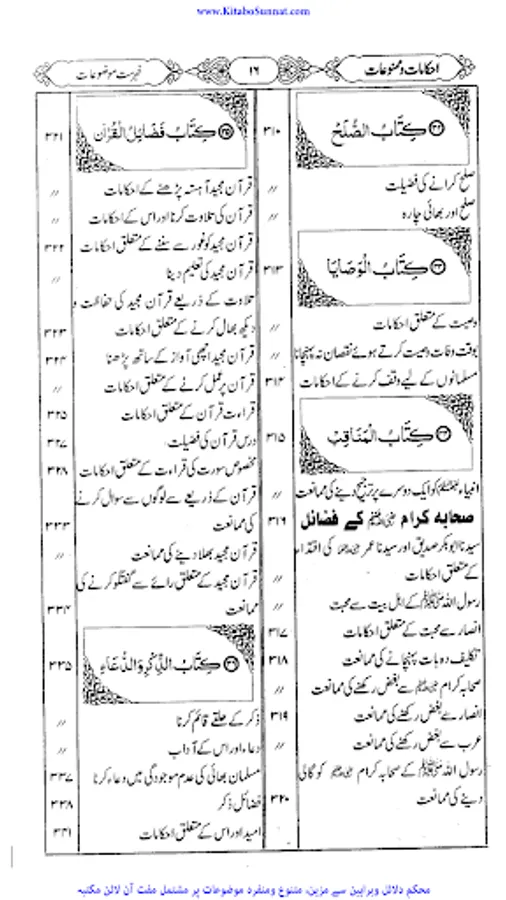 www.KitaboSunnat.com
احکامات و ممنوعات
۱۶
فہرست موضوعات
کِتَابُ الصُّلْحِ ۳۱۰
صلح کرانے کی فضیلت //
صلح اور بھائی چارہ //
کِتَابُ الْوَصَایَا ۳۱۳
وصیت کے متعلق احکامات //
بوقت وفات وصیت کرتے ہوئے نقصان نہ پہنچانا //
مسلمانوں کے لیے وقف کرنے کے احکامات ۳۱۴
کِتَابُ الْمَنَاقِبْ ۳۱۵
انبیاء علیہم السلام کو ایک دوسرے پر ترجیح دینے کی ممانعت //
صحابہ کرام رضی اللہ عنہم کے فضائل ۳۱۶
سیدنا ابوبکر صدیق اور سیدنا عمر رضی اللہ عنہما کی اقتداء
کے متعلق احکامات //
رسول اللہ ﷺ کے اہل بیت سے محبت //
انصار سے محبت کے متعلق احکامات ۳۱۷
تکلیف دہ بات پہنچانے کی ممانعت ۳۱۸
صحابہ کرام رضی اللہ عنہم سے بغض رکھنے کی ممانعت //
انصار سے بغض رکھنے کی ممانعت ۳۱۹
عرب سے بغض رکھنے کی ممانعت //
رسول اللہ ﷺ کے صحابہ کرام رضی اللہ عنہم کو گالی
دینے کی ممانعت ۳۲۰
کِتَابُ فَضَائِلُ الْقُرْآن ۳۲۱
قرآن مجید آہستہ پڑھنے کے احکامات //
قرآن کی تلاوت کرنا اور اس کے احکامات //
قرآن مجید کو غور سے سننے کے متعلق احکامات ۳۲۲
قرآن مجید کی تعلیم دینا //
تلاوت کے ذریعے قرآن مجید کی حفاظت و
دیکھ بھال کرنے کے متعلق احکامات ۳۲۳
قرآن مجید اچھی آواز کے ساتھ پڑھنا ۳۲۴
قرآن پر عمل کرنے کے متعلق احکامات //
قراءت قرآن کے متعلق احکامات ۳۲۵
درس قرآن کی فضیلت ۳۲۷
مخصوص سورت کی قراءت کے متعلق احکامات ۳۲۸
قرآن کے ذریعے سے لوگوں سے سوال کرنے
کی ممانعت ۳۳۳
قرآن مجید بھلا دینے کی ممانعت //
قرآن مجید کے متعلق رائے سے گفتگو کرنے کی
ممانعت ۳۳۴
کِتَابُ الذِّکْرِ وَالدُّعَاءِ ۳۳۵
ذکر کے حلقے قائم کرنا //
دعاء اور اس کے آداب //
مسلمان بھائی کی عدم موجودگی میں دعاء کرنا ۳۳۷
فضائل ذکر ۳۳۸
امید اور اس کے متعلق احکامات ۳۴۱
محکم دلائل وبراہین سے مزین، متنوع ومنفرد موضوعات پر مشتمل مفت آن لائن مکتبہ